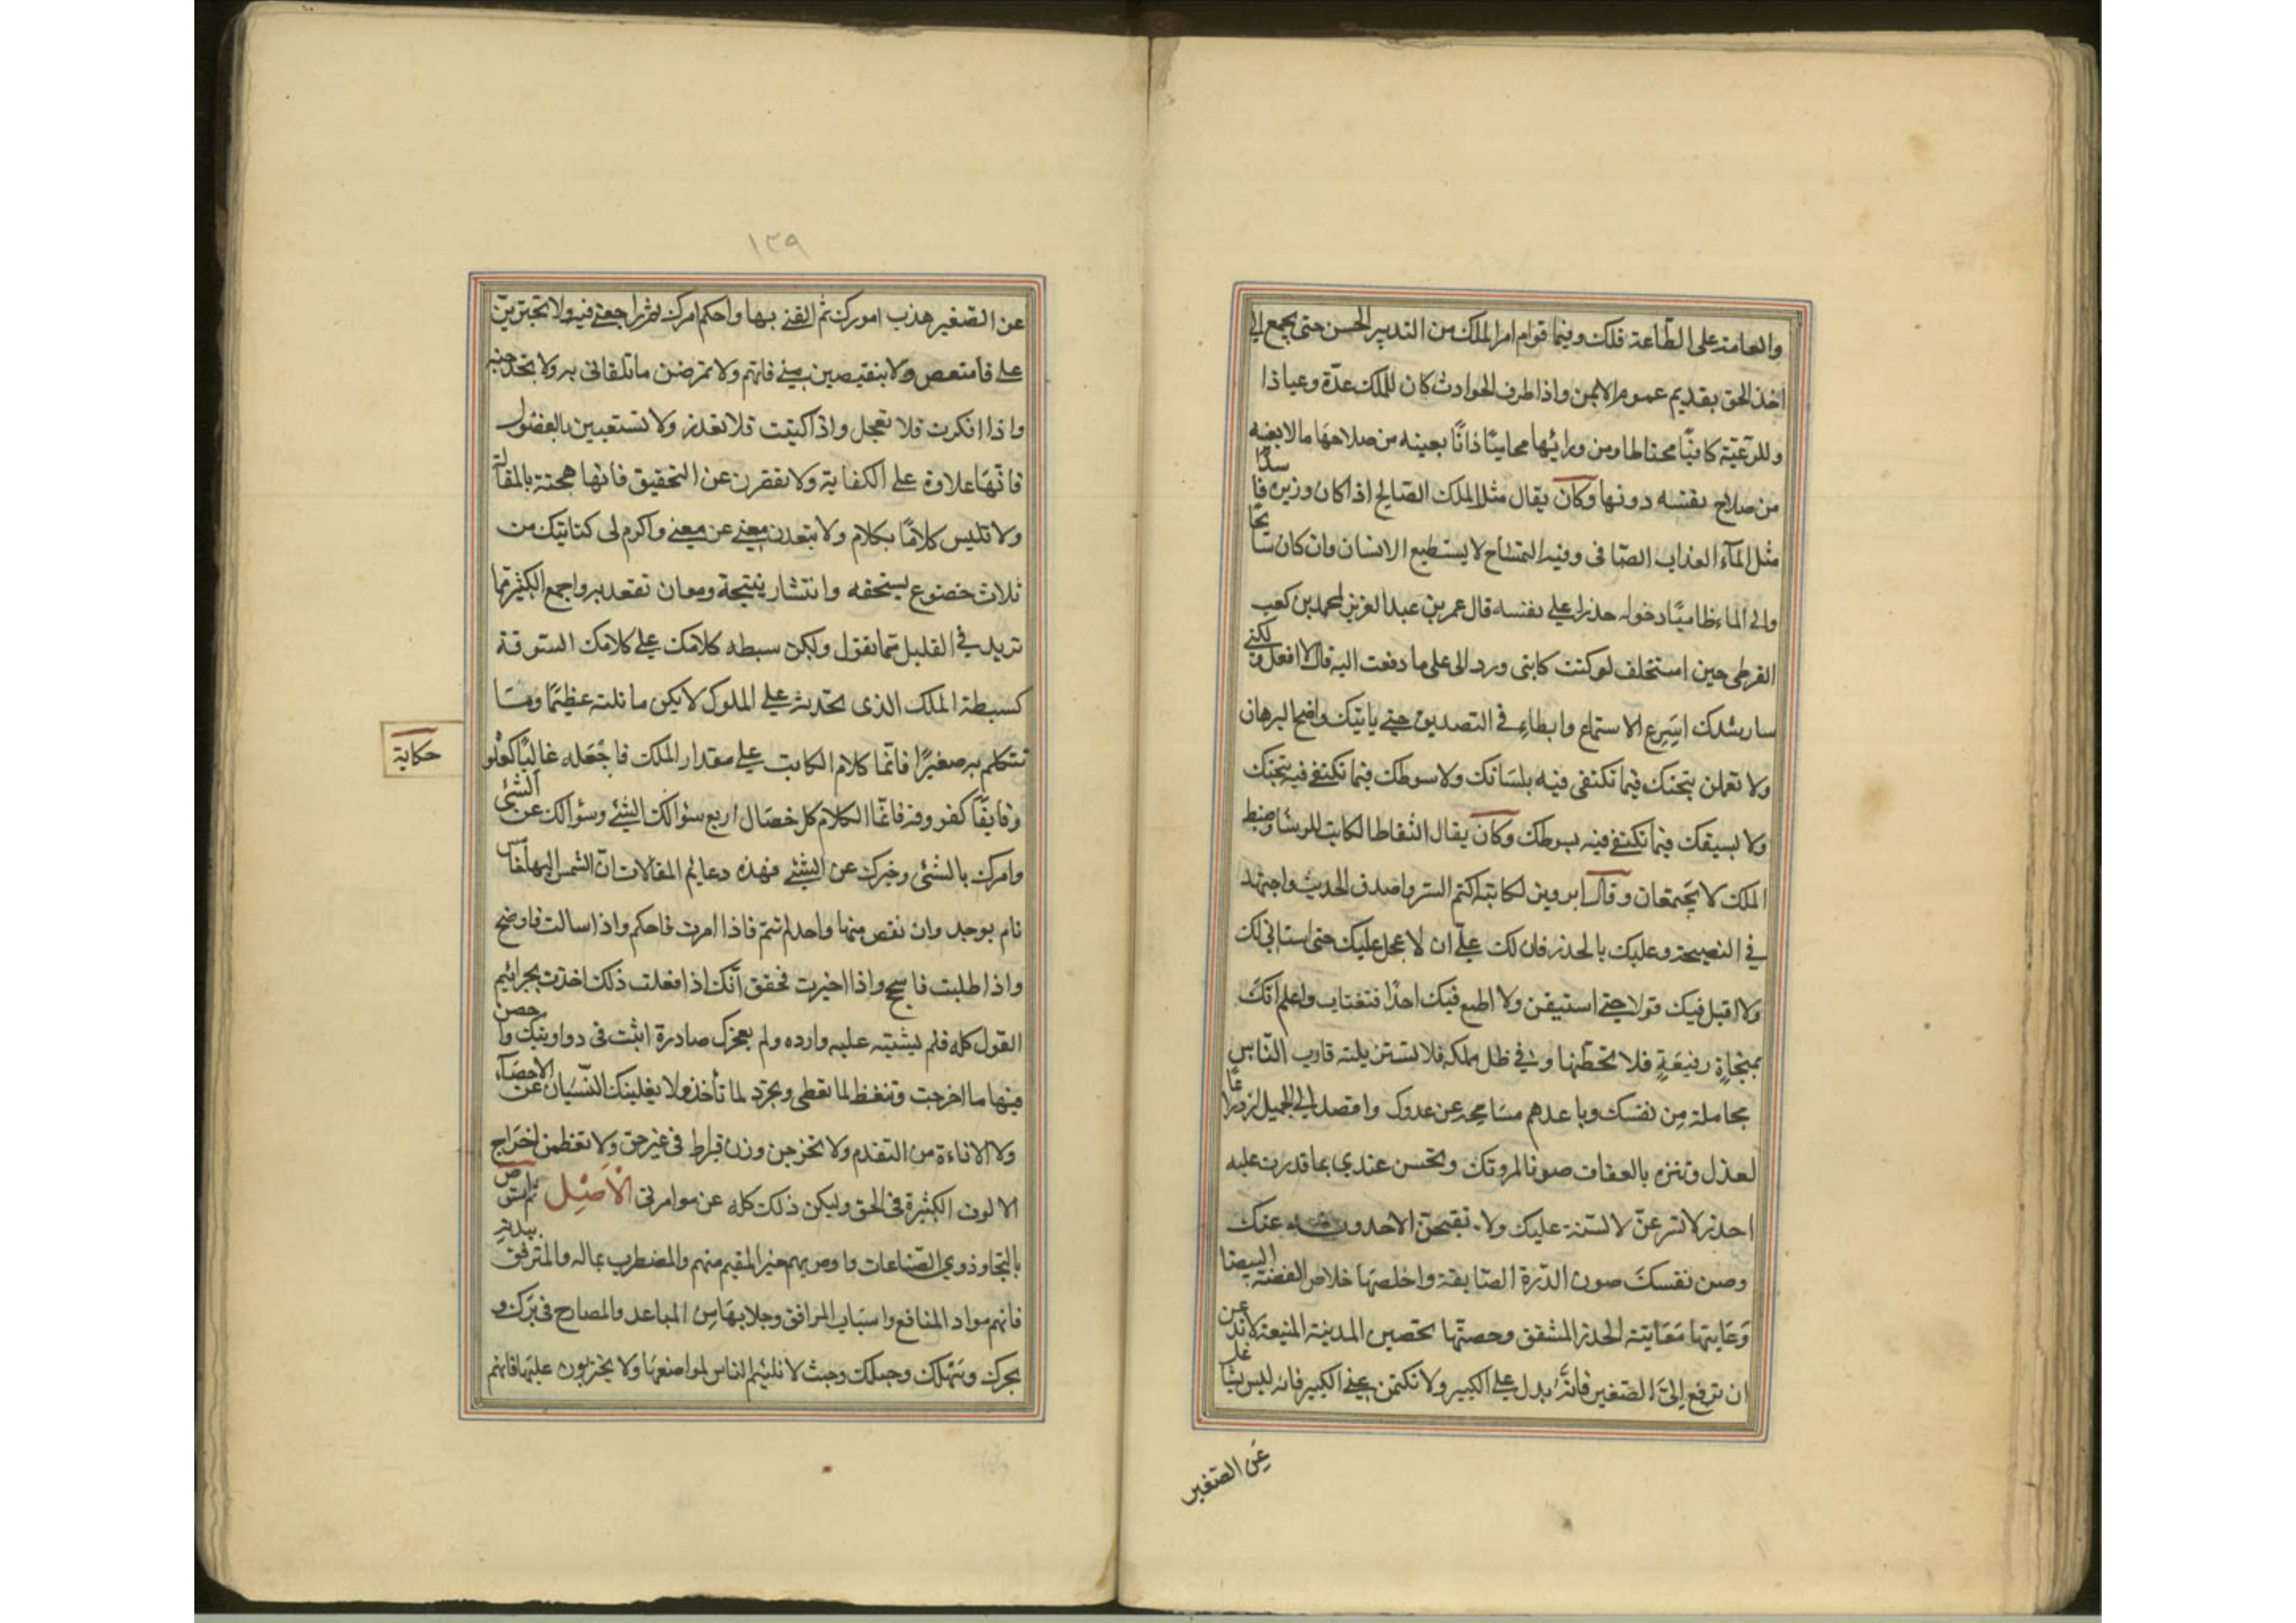 والعامة على الطاعة فلك وفيما قوام امر الملك من التدبير الحسن حتى يجمع الى
اخذ الحق بقديم عموم الامن واذا طرف الحوادث كان للملك عدّة وعياذا
وللرعيّة كافيًا محتاطا ومن ورائها محاميًا ذابًا بعينه من صلاحها ما لا يعنه
من صلاح نفسه دونها وكان يقال مثل الملك الصالح اذا كان وزيره فاسدًا
مثل المآء العذاب الصافى وفيه التمساح لا يستطيع الانسان وان كان سابحًا
والى الماء ظاميًا دخوله حذرا على نفسه قال عمر بن عبد العزيز لمحمد بن كعب
القرظى حين استخلف لو كنت كاتبى ورد الى على ما دفعت اليه قال لا افعل ولكنى
سارشدك اسرع الاستماع وابطاء فى التصديق حتى ياتيك واضح البرهان
ولا تعملن بتحنك فيما تكتفى فيه بلسانك ولا سوطك فيما تكتفى فيه بتحنك
ولا بسيفك فيما تكتفى فيه بسوطك وكان يقال التقاط الكاتب للرشا وضبط
الملك لا يجتمعان وقال ابرويز لكاتبه اكتم السر واصدق الحديث واجتهد
فى النصيحة وعليك بالحذر فان لك علىّ ان لا اعجل عليك حتى استانى لك
ولا اقبل فيك قولا حتى استيقن ولا اطمع فيك احدًا فتغتاب واعلم انّك
بمنجاة رفيعة فلا تحطّنها وفى ظل مملكه فلا تستزيلنه قارب النّاس
مجاملة من نفسك وباعدهم مسامحة عن عدوك واقصد الى الجميل
لعذل وتنزه بالعفات صونا لمروتك وتحسن عندى بما قدرت عليه
احذر لا تسرعنّ لالسنة عليك ولا تقبحن الاحدوثـه عنك
وصن نفسك صون الدّرة الصابقة واخلصها خلاص الفضة البيضا
وعاتبها معاتبة الحذر المشفق وحصنها تحصين المدينة المنيعة لا تدعن
ان ترفع الىّ الصغير فانّه يدل على الكبير ولا تكتمن عنى الكبير فانه ليس بشاغل
عن الصغير
١٢٩
عن الصغير هذب امورك ثم القنى بها واحكم امرك ثم راجعنى فيه ولا تجترين
على فامتعص ولا تنقبضن منى فاتهم ولا تمرضن ما تلقانى به ولا تخدجنه
واذا انكرت فلا تعجل واذا كتبت فلا تعذر ولا تستعين بالفضول
فانها علاوة على الكفاية ولا تقصرن عن التحقيق فانها هجنة بالمقالة
ولا تلبس كلامًا بكلام ولا تبعدن معنى عن معنى واكرم لى كتابتك من
ثلاث خضوع يستحقه وانتشار يتيحه ومعان تقعد به واجمع الكثير مما
تريد فى القليل مما تقول وليكن سبطه كلامك على كلامك السوقة
كسبطة الملك الذى تحدثه على الملوك لا يكن ما نلته عظيمًا وما
تتكلم به صغيرًا فانّما كلام الكاتب على مقدار الملك فاجعله عاليًا كعلو
وفايقًا كفوقه فانما الكلام كل خصال اربع سؤالك الشئ وسؤالك عن الشئ
وامرك بالشئ وخبرك عن الشئ فهذه دعايم المقالات ان التمس اليها خامس
نام يوجد وان نقص منها واحد لم تتم فاذا امرت فاحكم واذا سالت فاوضح
واذا طلبت فاسجح واذا اخبرت فحقق انّك اذا فعلت ذلك اخذت بجراثيم
القول كله فلم يشتبه عليه وارده ولم يعجزك صادرة اثبت فى دواوينك واحصن
فيها ما اخرجت وتنغظ لما تعطى وتجرّد لما تأخذ ولا يغلبنك النسيان عن الاحصآء
ولا الاناءة من التقدم ولا تخرجن وزن قيراط فى غير حق ولا تعظمن اخراج
الالوف الكثيرة فى الحق وليكن ذلك كله عن موامرتى الاصل ثم استوص
بالتجا وذوي الصناعات واوص بهم خير المقيم منهم والمضطرب بماله والمترفق ببدنه
فانهم مواد المنافع واسباب المرافق وجلابها من المباعد والمصارح فى برك و
بحرك وسهلك وجبلك وحيث لا تلتئم الناس لمواضعها ولا يجترءون عليها فانهم
حكاية